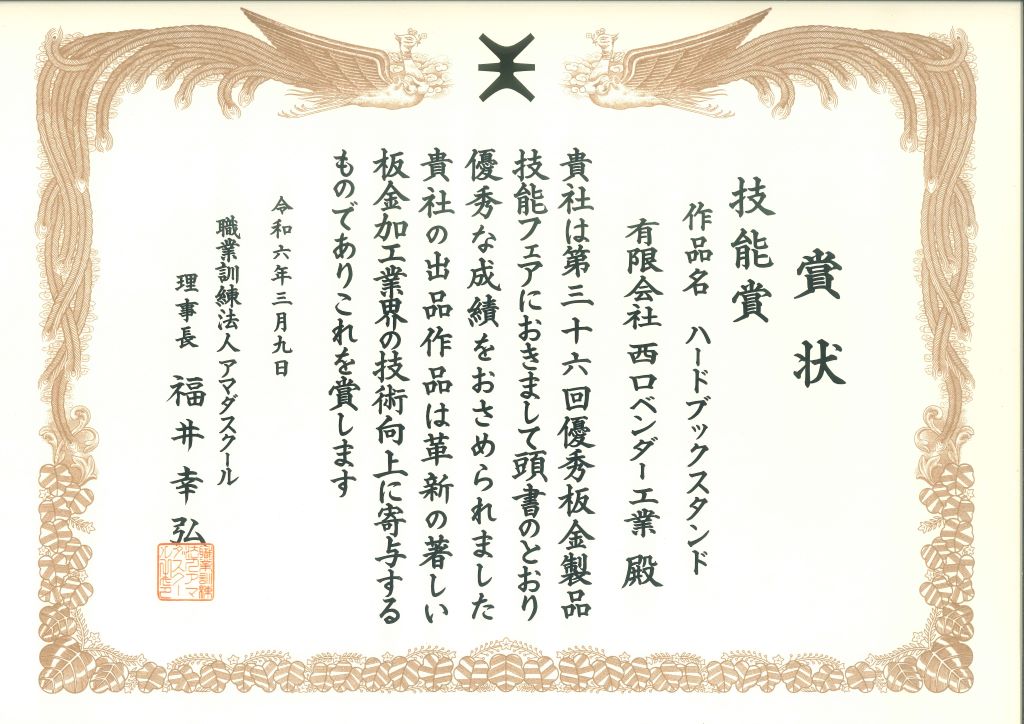 賞状
技能賞
作品名 ハードブックスタンド
有限会社 西口ベンダー工業 殿
貴社は第三十六回優秀板金製品
技能フェアにおきまして頭書のとおり
優秀な成績をおさめられました
貴社の出品作品は革新の著しい
板金加工業界の技術向上に寄与する
ものでありこれを賞します
令和六年三月九日
職業訓練法人 アマダスクール
理事長 福井幸弘